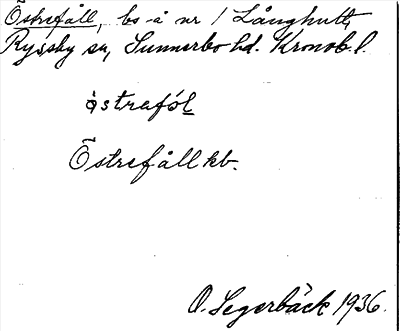 Östrefåll, bs å nr 1 Långhult,
Ryssby sn, Sunnerbo hd. Kronob. l.
ȯstrafȯl
Östrefåll kb.
O. Segerbäck 1936.